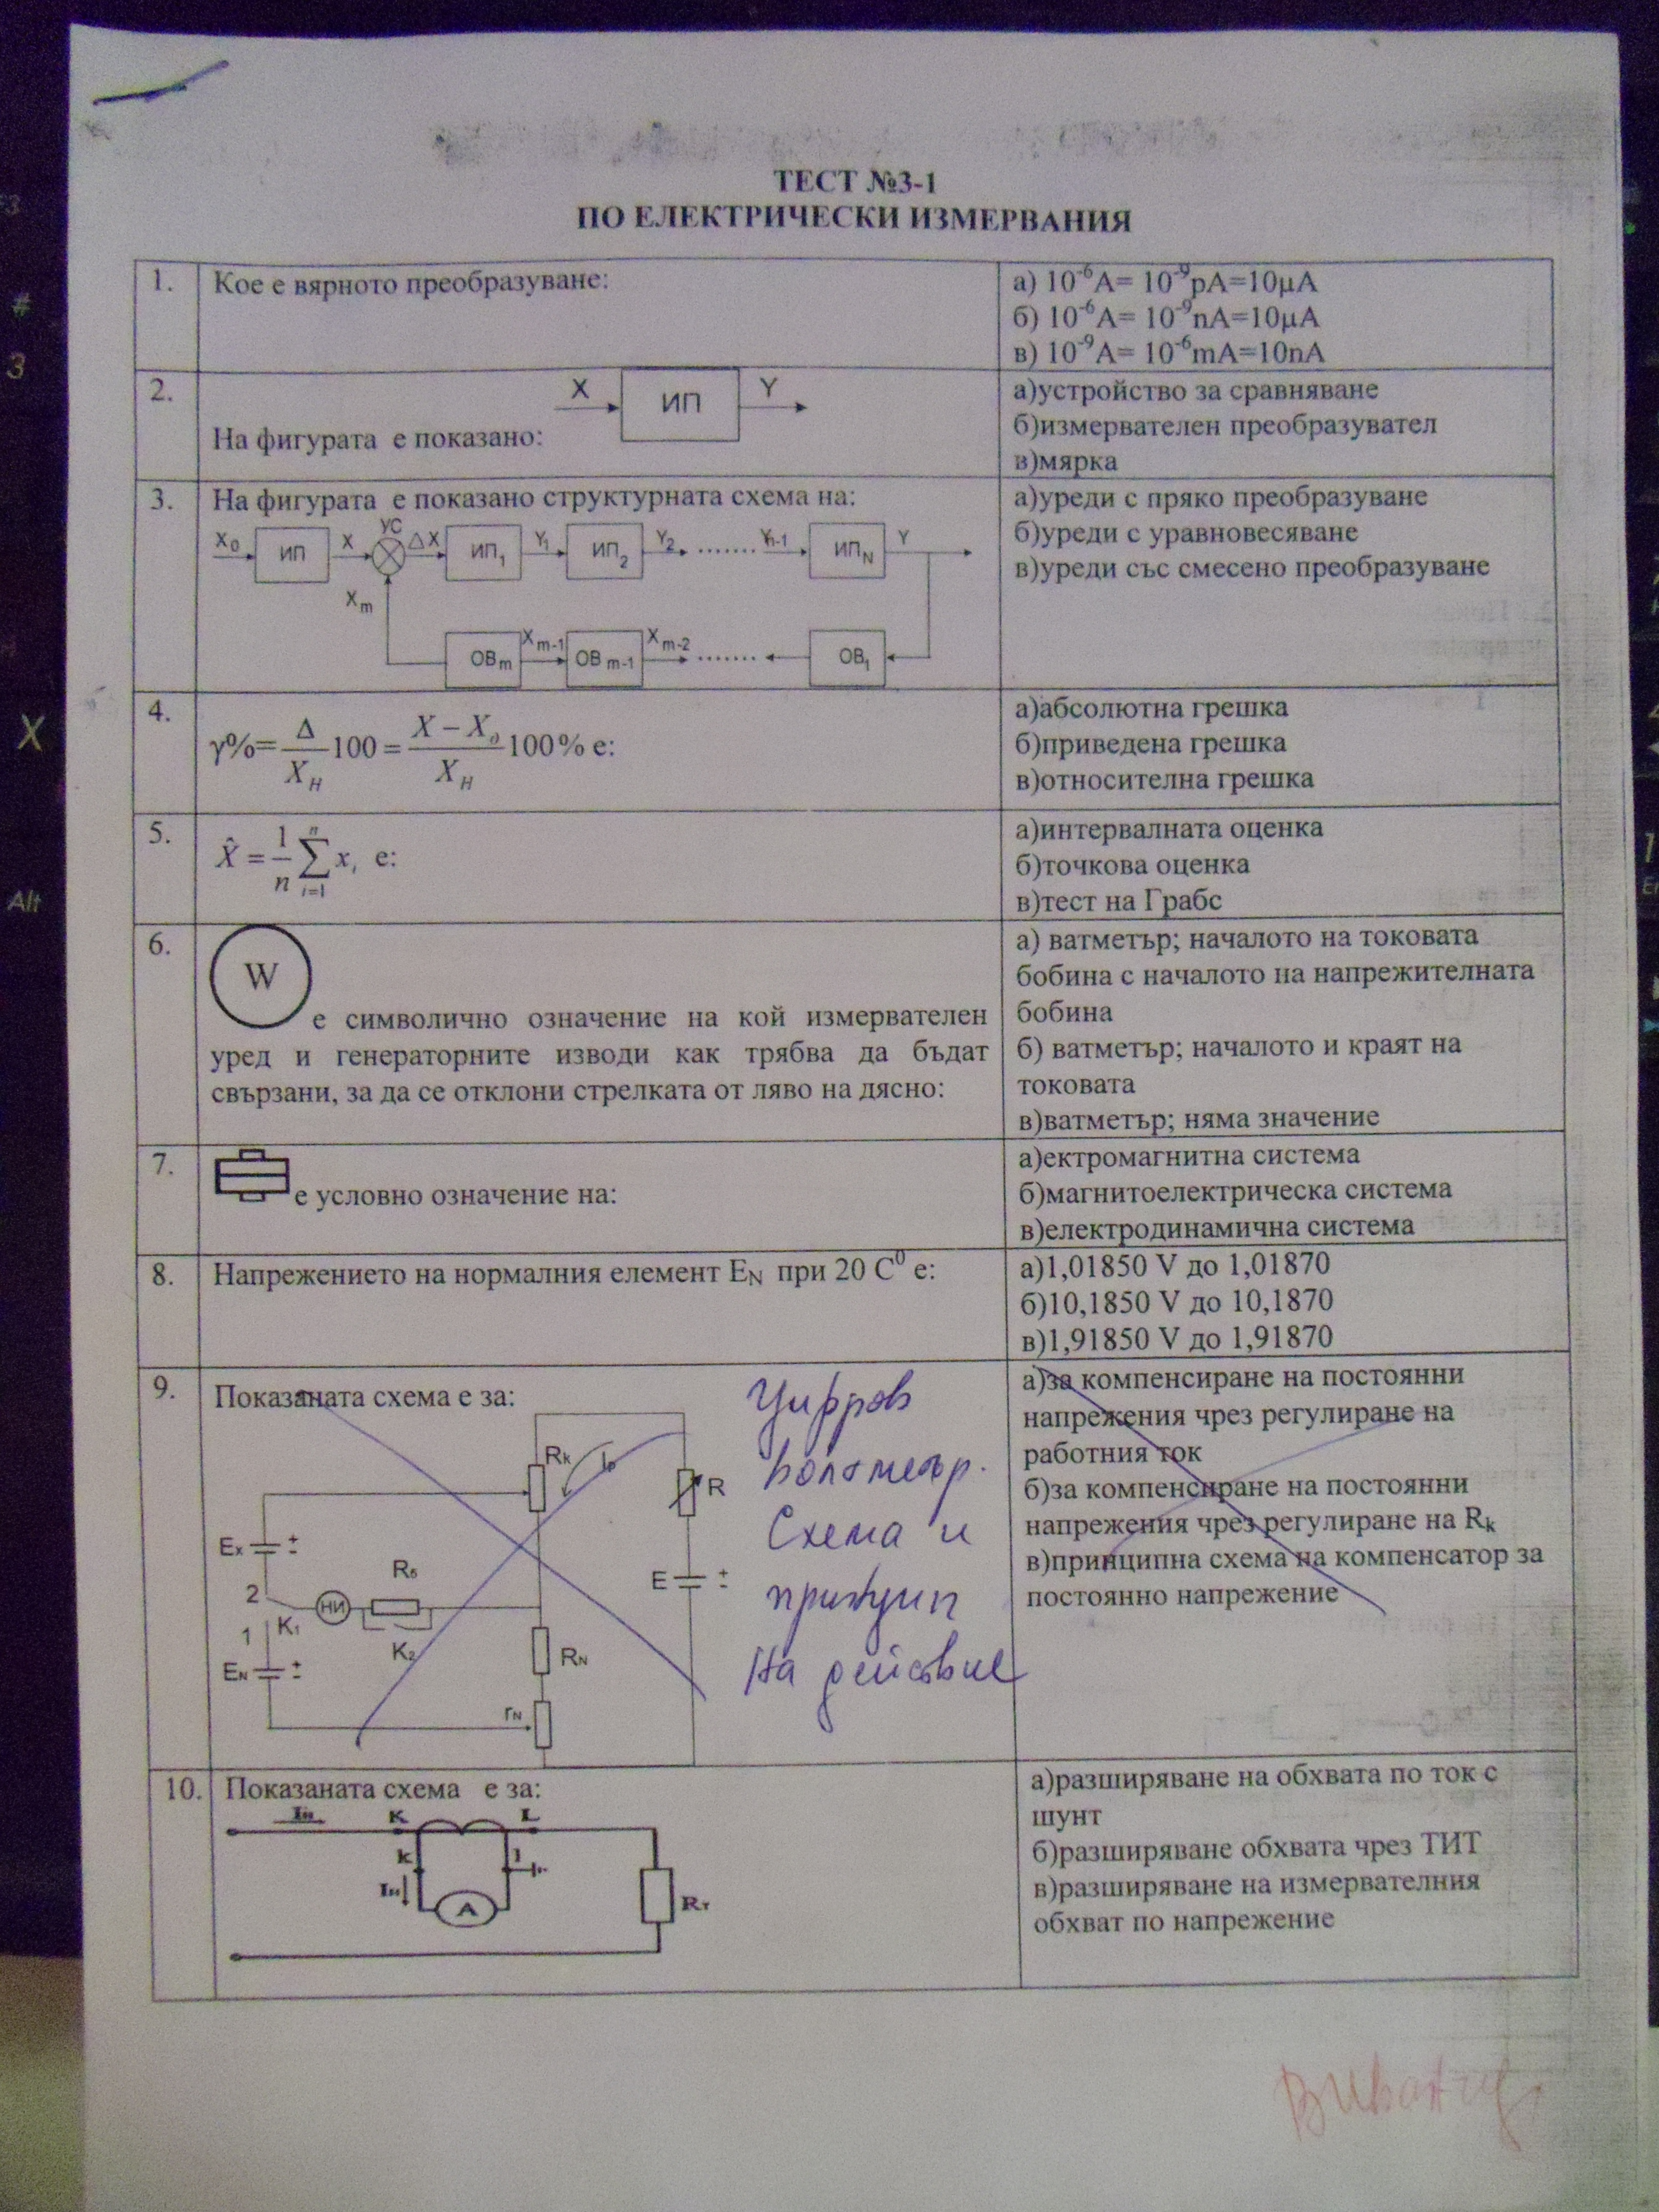 ТЕСТ №3-1
ПО ЕЛЕКТРИЧЕСКИ ИЗМЕРВАНИЯ
1. Кое е вярното преобразуване:
а) 10⁻⁶А= 10⁻⁹pA=10μA
б) 10⁻⁶А= 10⁻⁹nA=10μA
в) 10⁻⁹А= 10⁻⁶mA=10nA
2. X ИП Y
На фигурата е показано:
а)устройство за сравняване
б)измервателен преобразувател
в)мярка
3. На фигурата е показано структурната схема на:
X₀ ИП X УС ΔX ИП₁ Y₁ ИП₂ Y₂ ....... Yn-1 ИПN Y
Xm
ОВm Xm-1 ОВm-1 Xm-2 ....... ОВ₁
а)уреди с пряко преобразуване
б)уреди с уравновесяване
в)уреди със смесено преобразуване
4. γ%= Δ/X_H 100 = (X − X₀)/X_H 100% е:
а)абсолютна грешка
б)приведена грешка
в)относителна грешка
5. X̂ = 1/n ∑ⁿᵢ₌₁ xᵢ е:
а)интервалната оценка
б)точкова оценка
в)тест на Грабс
6. W
е символично означение на кой измервателен
уред и генераторните изводи как трябва да бъдат
свързани, за да се отклони стрелката от ляво на дясно:
а) ватметър; началото на токовата
бобина с началото на напрежителната
бобина
б) ватметър; началото и краят на
токовата
в)ватметър; няма значение
7. е условно означение на:
а)ектромагнитна система
б)магнитоелектрическа система
в)електродинамична система
8. Напрежението на нормалния елемент E_N при 20 С⁰ е:
а)1,01850 V до 1,01870
б)10,1850 V до 10,1870
в)1,91850 V до 1,91870
9. Показаната схема е за:
Rk R
Ex + -
E + -
Rб
2 НИ
1 K₁
K₂
EN + -
RN
rN
Цифров
волтметър.
Схема и
принцип
на действие
а)за компенсиране на постоянни
напрежения чрез регулиране на
работния ток
б)за компенсиране на постоянни
напрежения чрез регулиране на Rk
в)принципна схема на компенсатор за
постоянно напрежение
10. Показаната схема е за:
K L
k l
A
Rт
а)разширяване на обхвата по ток с
шунт
б)разширяване обхвата чрез ТИТ
в)разширяване на измервателния
обхват по напрежение
#
3
X
Alt